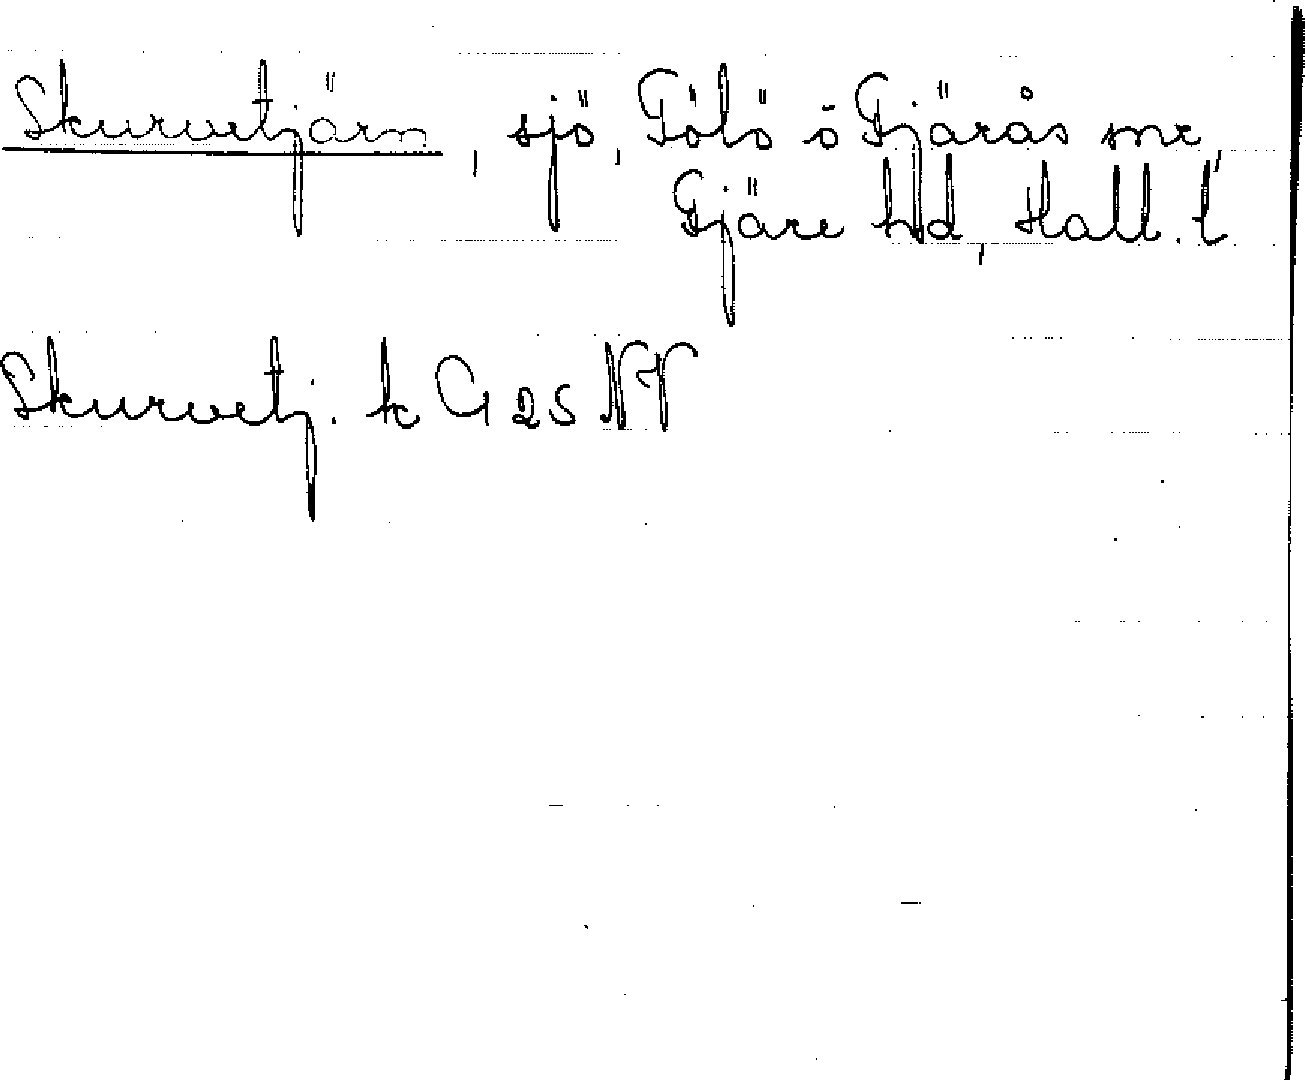 Skurvetjärn, sjö, Fölö o Fjärås snr,
Fjäre hd, Hall. l
Skurvetj. k G 25 NV